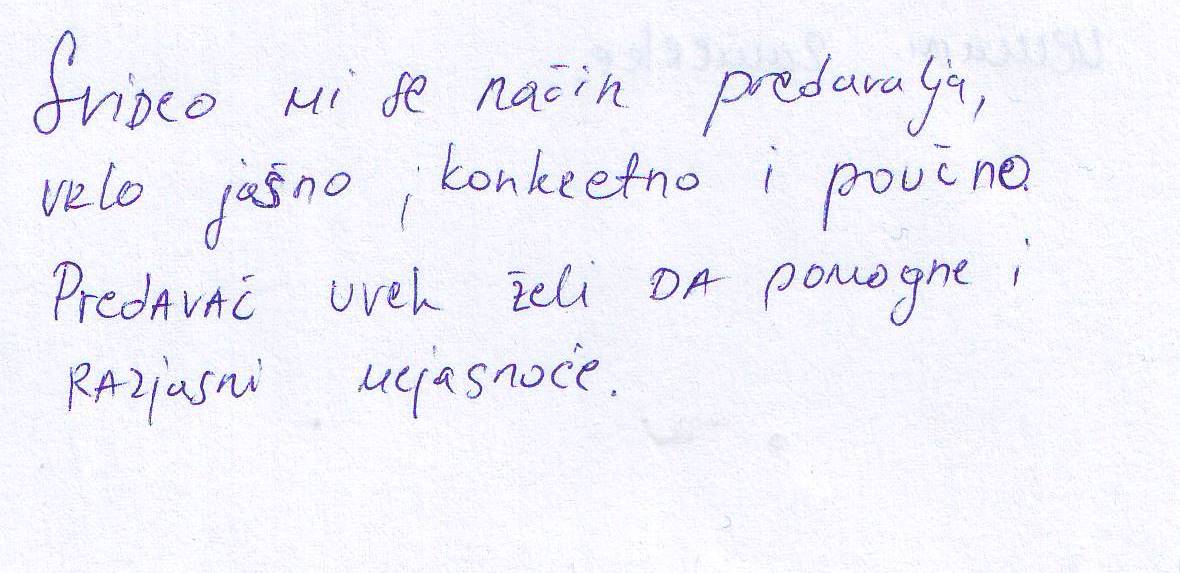 Svideo mi se način predavalja,
vrlo jasno, konkretno i poučno.
Predavač uvek želi da pomogne i
razjasni nejasnoće.